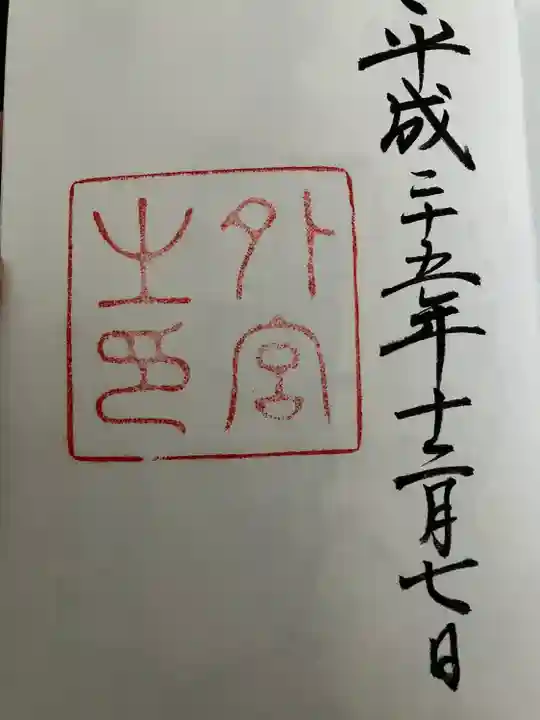 平成二十五年十二月七日
外宮
之印